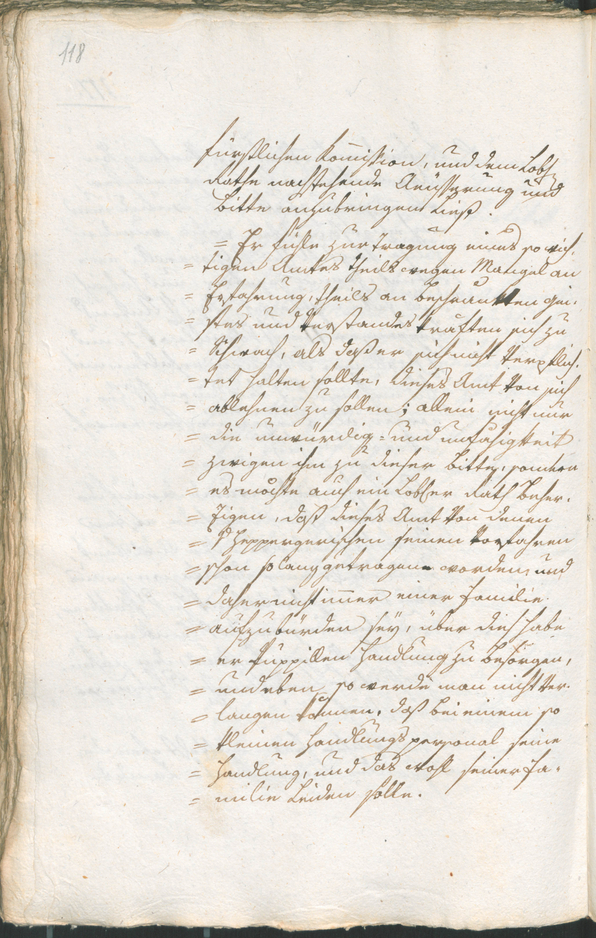 118
fürstlichen Kom̅ission, und dem Lobl.
Rathe nachstehende Aeüsserung und
Bitte anzubringen ließ:
= Er fühle zur Tragung eines so wich-
= tigen Amtes theils wegen Mangel an
= Erfahrung, theils an beschränkten Gei-
= stes und Verstandes Kräften sich zu
= Schwach, als daß er sich nicht Verpflich-
= tet halten sollte, dieses Amt von sich
= ablehnen zu sollen; allein nicht nur
= die unwürdig- und unfähigkeit
= zwigen ihn zu dieser Bitte, sondern
= es möchte auch ein Lobl.er Rath beher-
= zigen, daß dieses Amt von denen
= seinen Vorfahren
= schon so lang getragen worden, und
= daher nicht im̅er einer Familie
= aufzubürden sey, über dies habe
= er Puppillen Handlung zu besorgen,
= und eben so werde man nicht ver-
= langen können, daß bei einem so
= kleinen Handlungs personal seine
= Handlung, und das Wohl seiner Fa-
= milie Leiden solle.